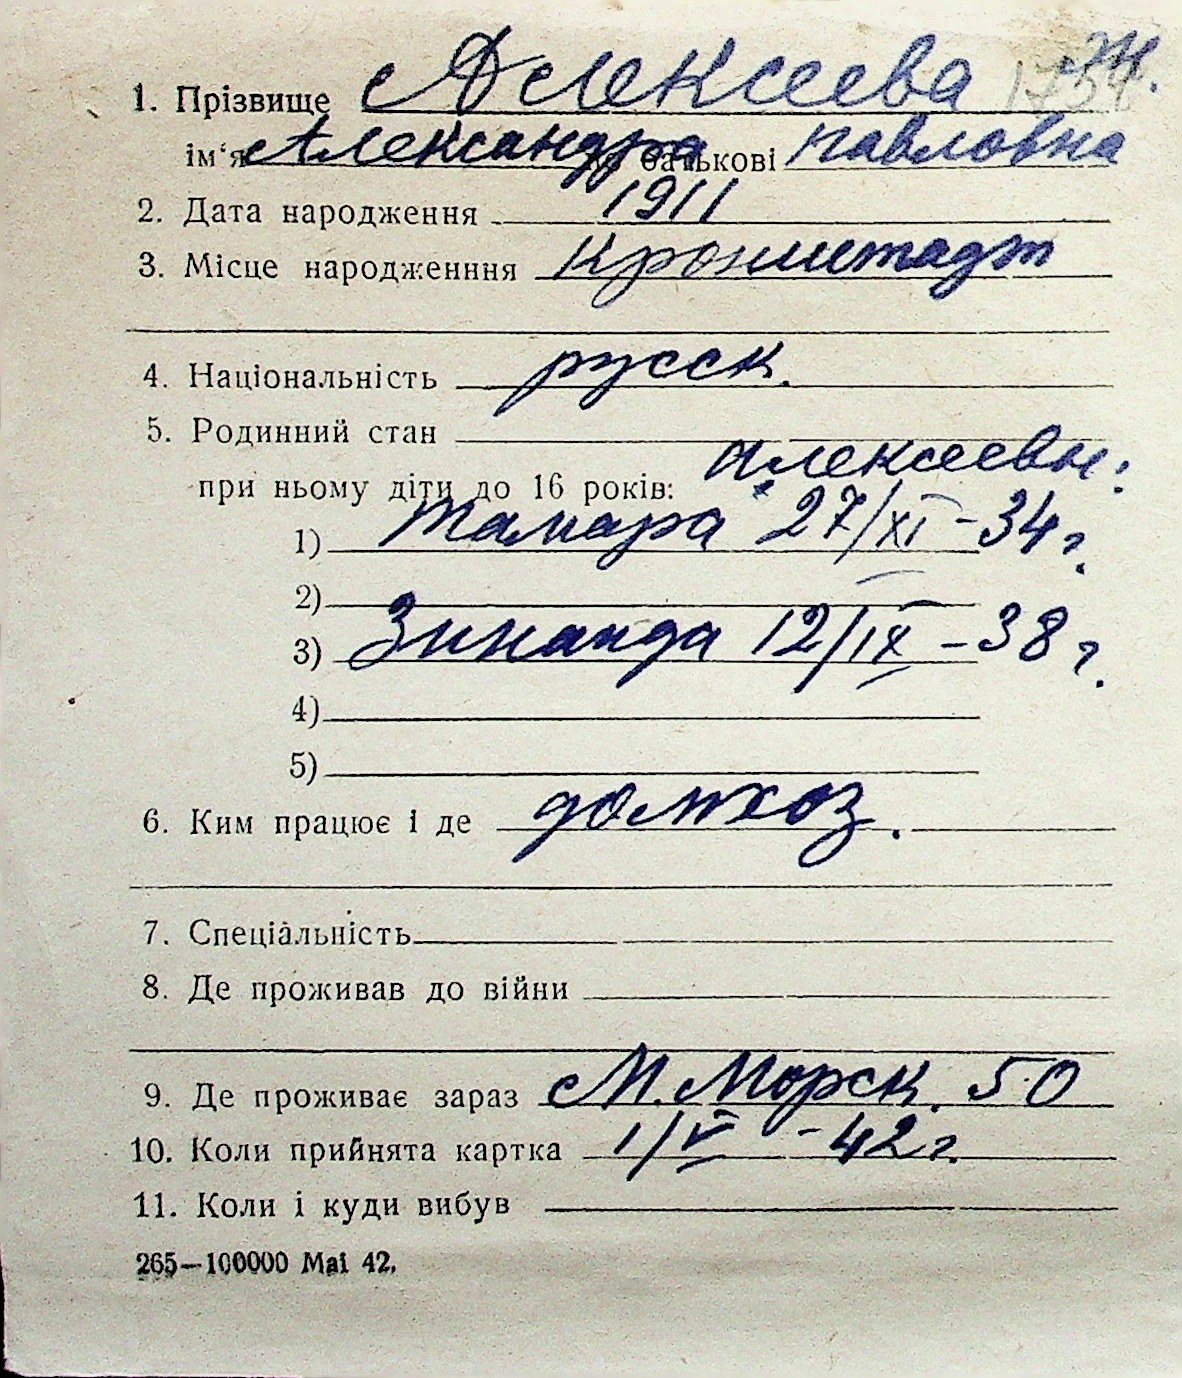 1. Прізвище Алексеева 1754 Ж.
ім‘я Александра по батькові Павловна
2. Дата народження 1911
3. Місце народженння Кронштадт
4. Національність русск.
5. Родинний стан
при ньому діти до 16 років: Алексеевы:
1) Тамара 27/XI - 34 г.
2)
3) Зинаида 12/IX - 38 г.
4)
5)
6. Ким працює і де домхоз.
7. Спеціальність
8. Де проживав до війни
9. Де проживає зараз М. Морск. 50
10. Коли прийнята картка 1/V - 42 г.
11. Коли і куди вибув
265—100000 Mai 42.